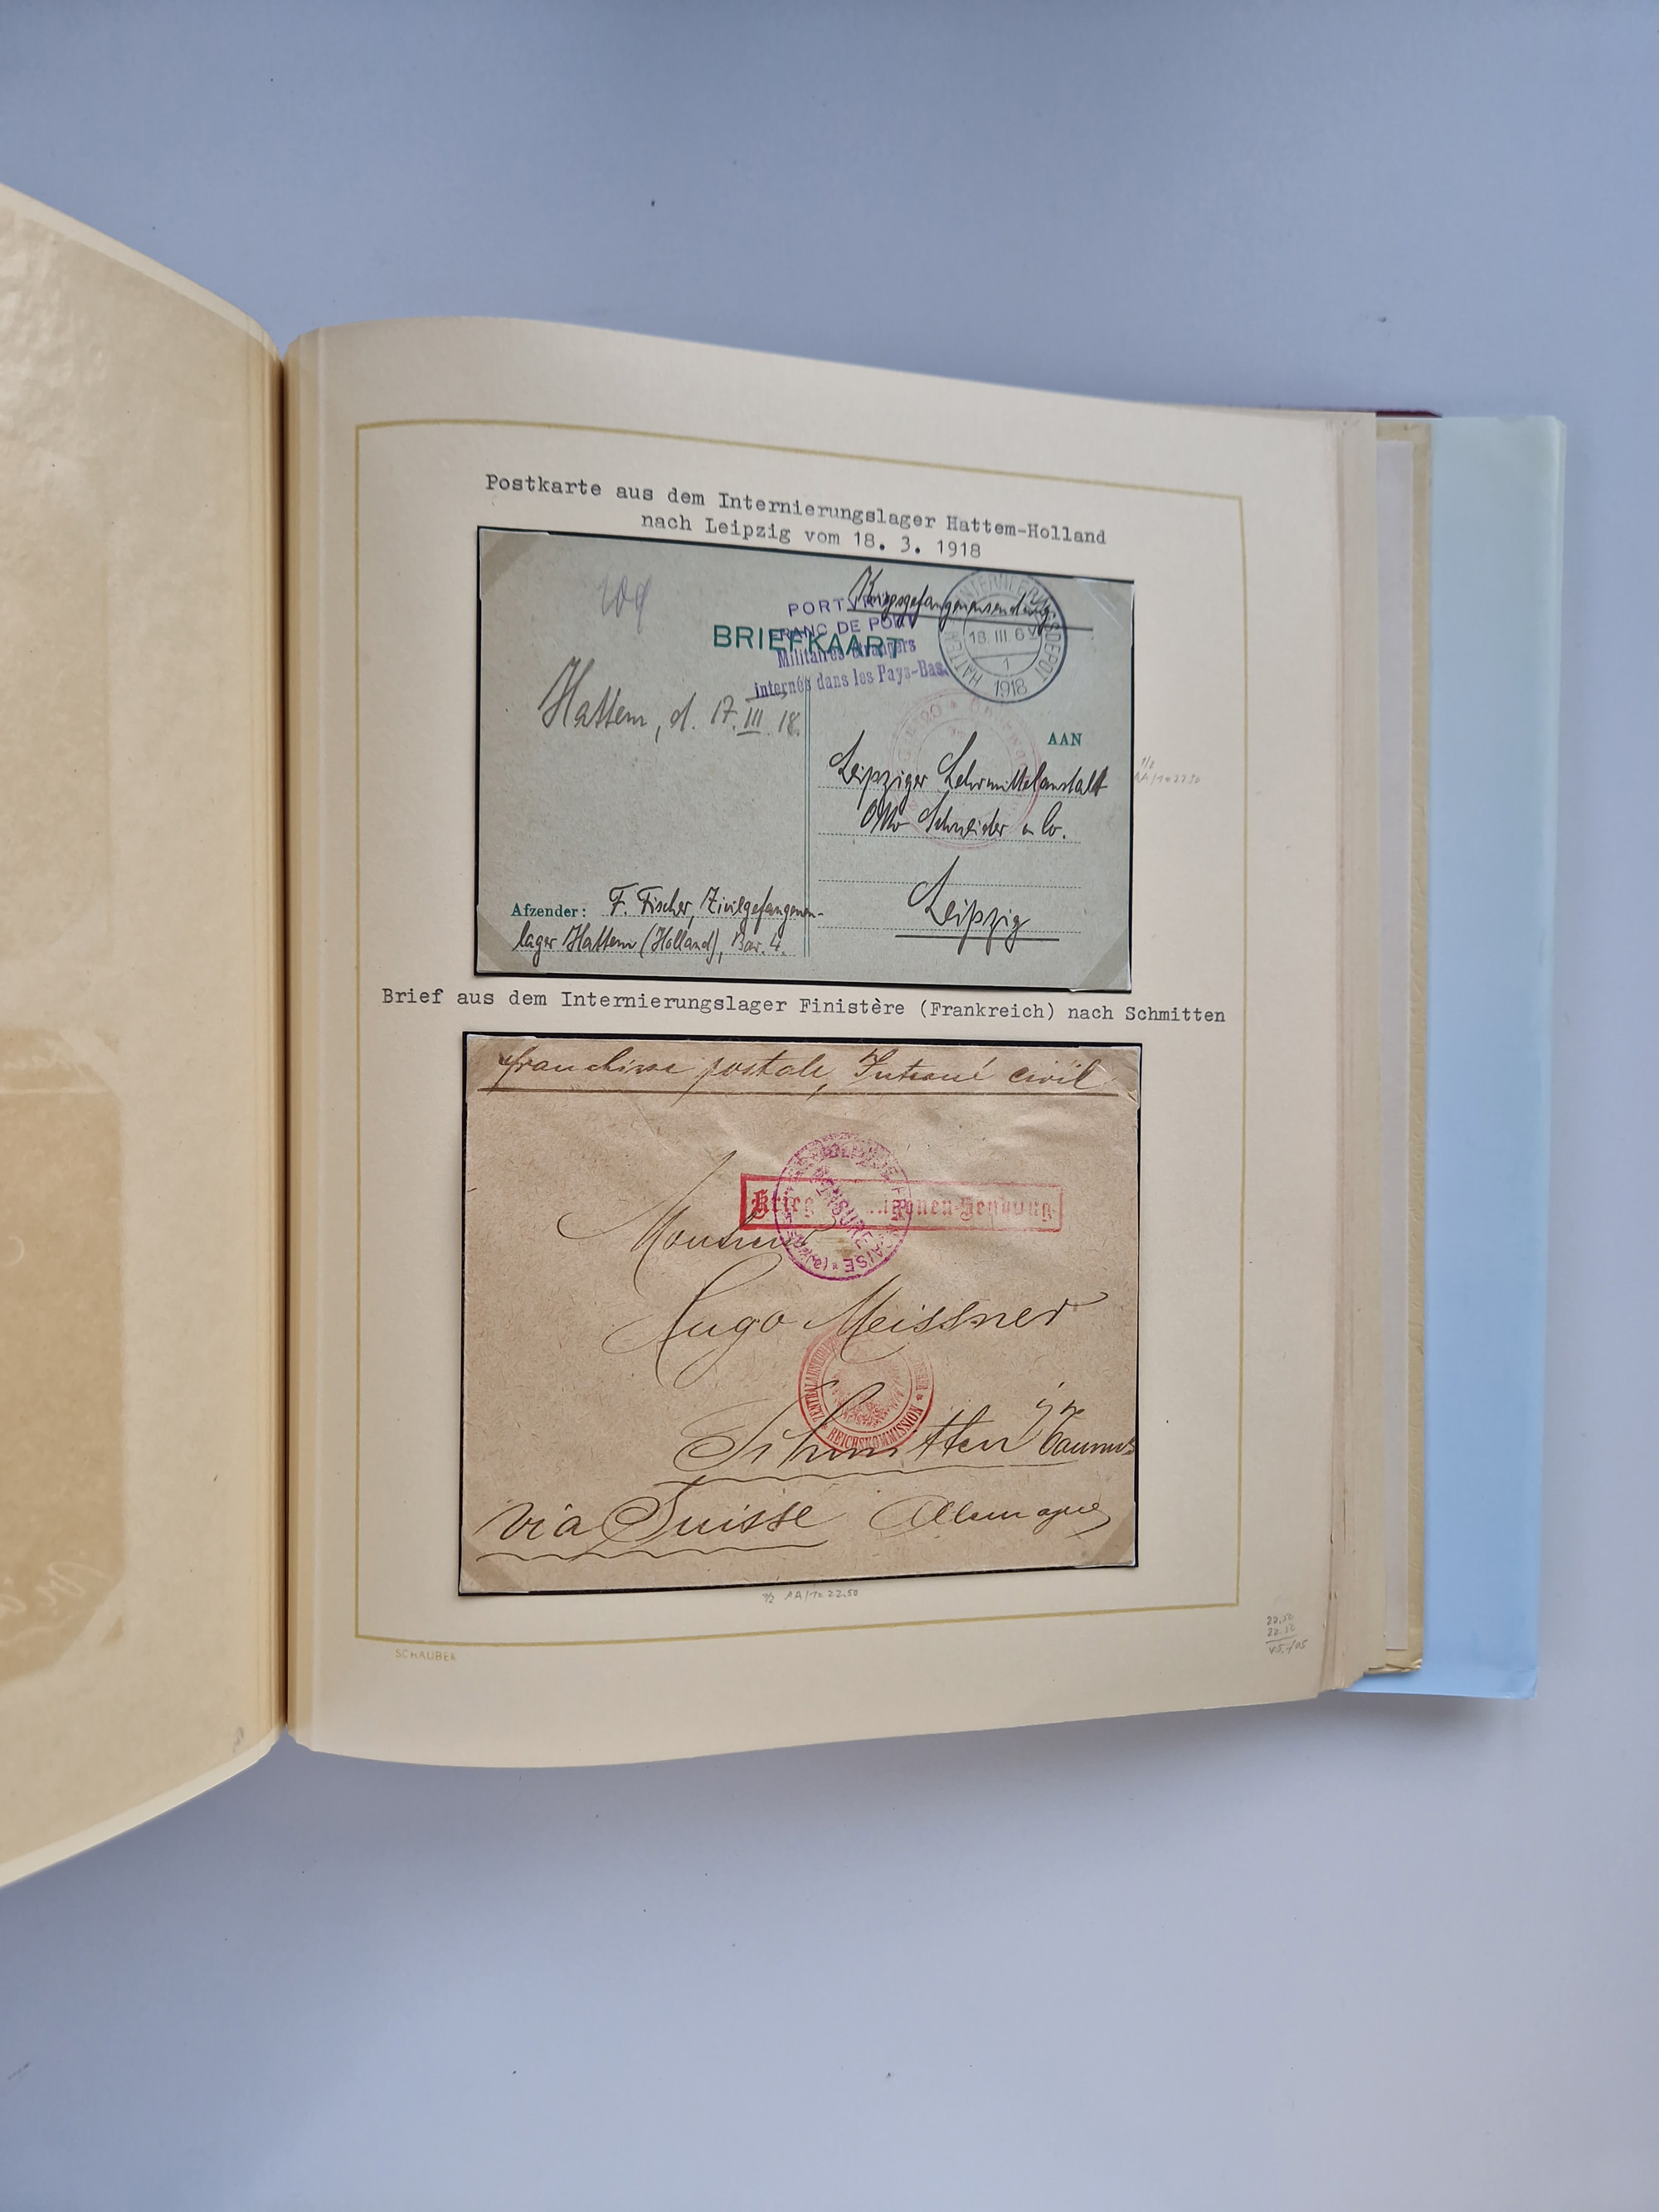 Postkarte aus dem Internierungslager Hattem-Holland
nach Leipzig vom 18. 3. 1918
Kriegsgefangenensendung
PORTVRIJ
FRANC DE PORT
BRIEFKAART
Militaires étrangers
internés dans les Pays-Bas.
INTERNEERINGSDEPOT
18.III.6V
1
HATTEM
1918
Hattem, d. 17. III. 18.
AAN
Leipziger Lehrmittelanstalt
Otto Schneider u Co.
Leipzig
Afzender: F. Fischer, Zivilgefangenen-
lager Hattem (Holland), Bar. 4.
Brief aus dem Internierungslager Finistère (Frankreich) nach Schmitten
franchise postale, Interné civil
Krieg nen-Sendung
CENSURE
Monsieur
Hugo Meissner
REICHSKOMMISSION
Schmitten i/T
Taunus
via Suisse Allemagne
1/2 AA/72 22.50
22.50
22.50
45.-/05
SCHAUBEK